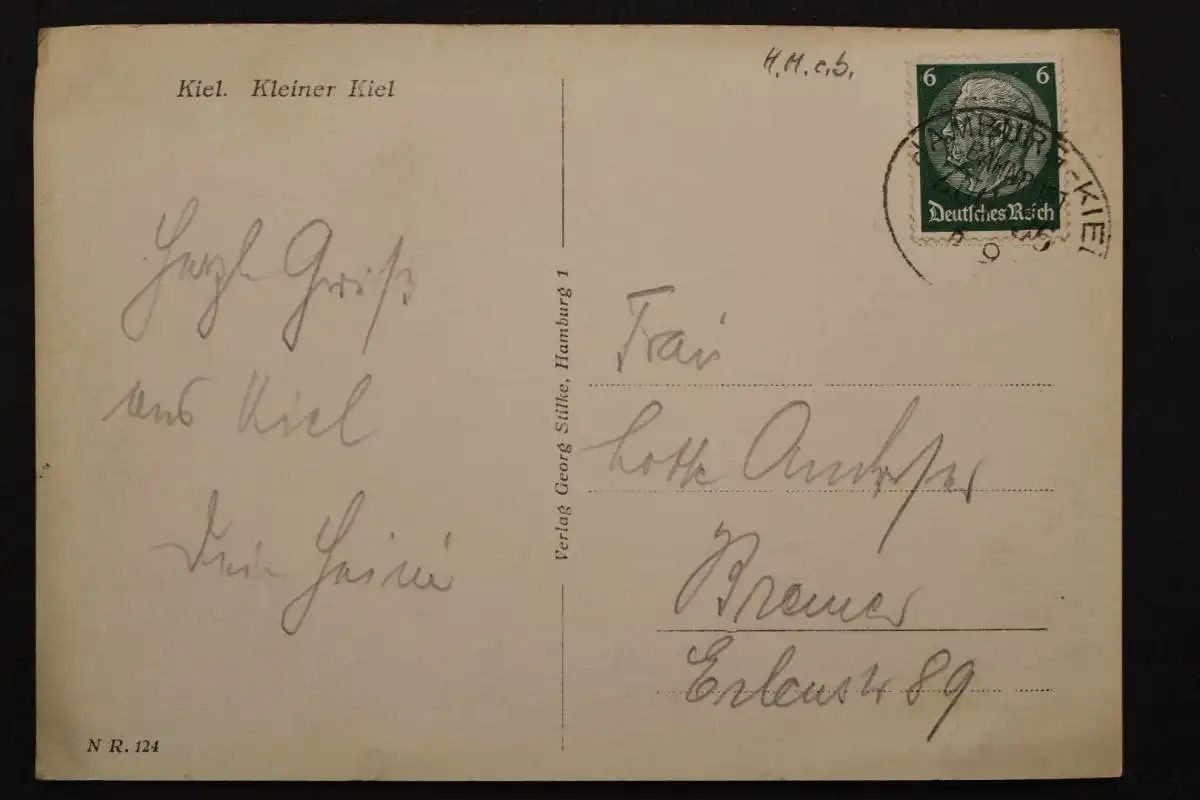 Kiel. Kleiner Kiel
H.H.c.b.
6 6
Deutsches Reich
HAMBURG-KIEL
BAHNPOST
9
Herzl Gruß
aus Kiel
Dein Heini
Verlag Georg Stilke, Hamburg 1
Frau
Lotte
Bremen
Erlenstr 89
N R. 124